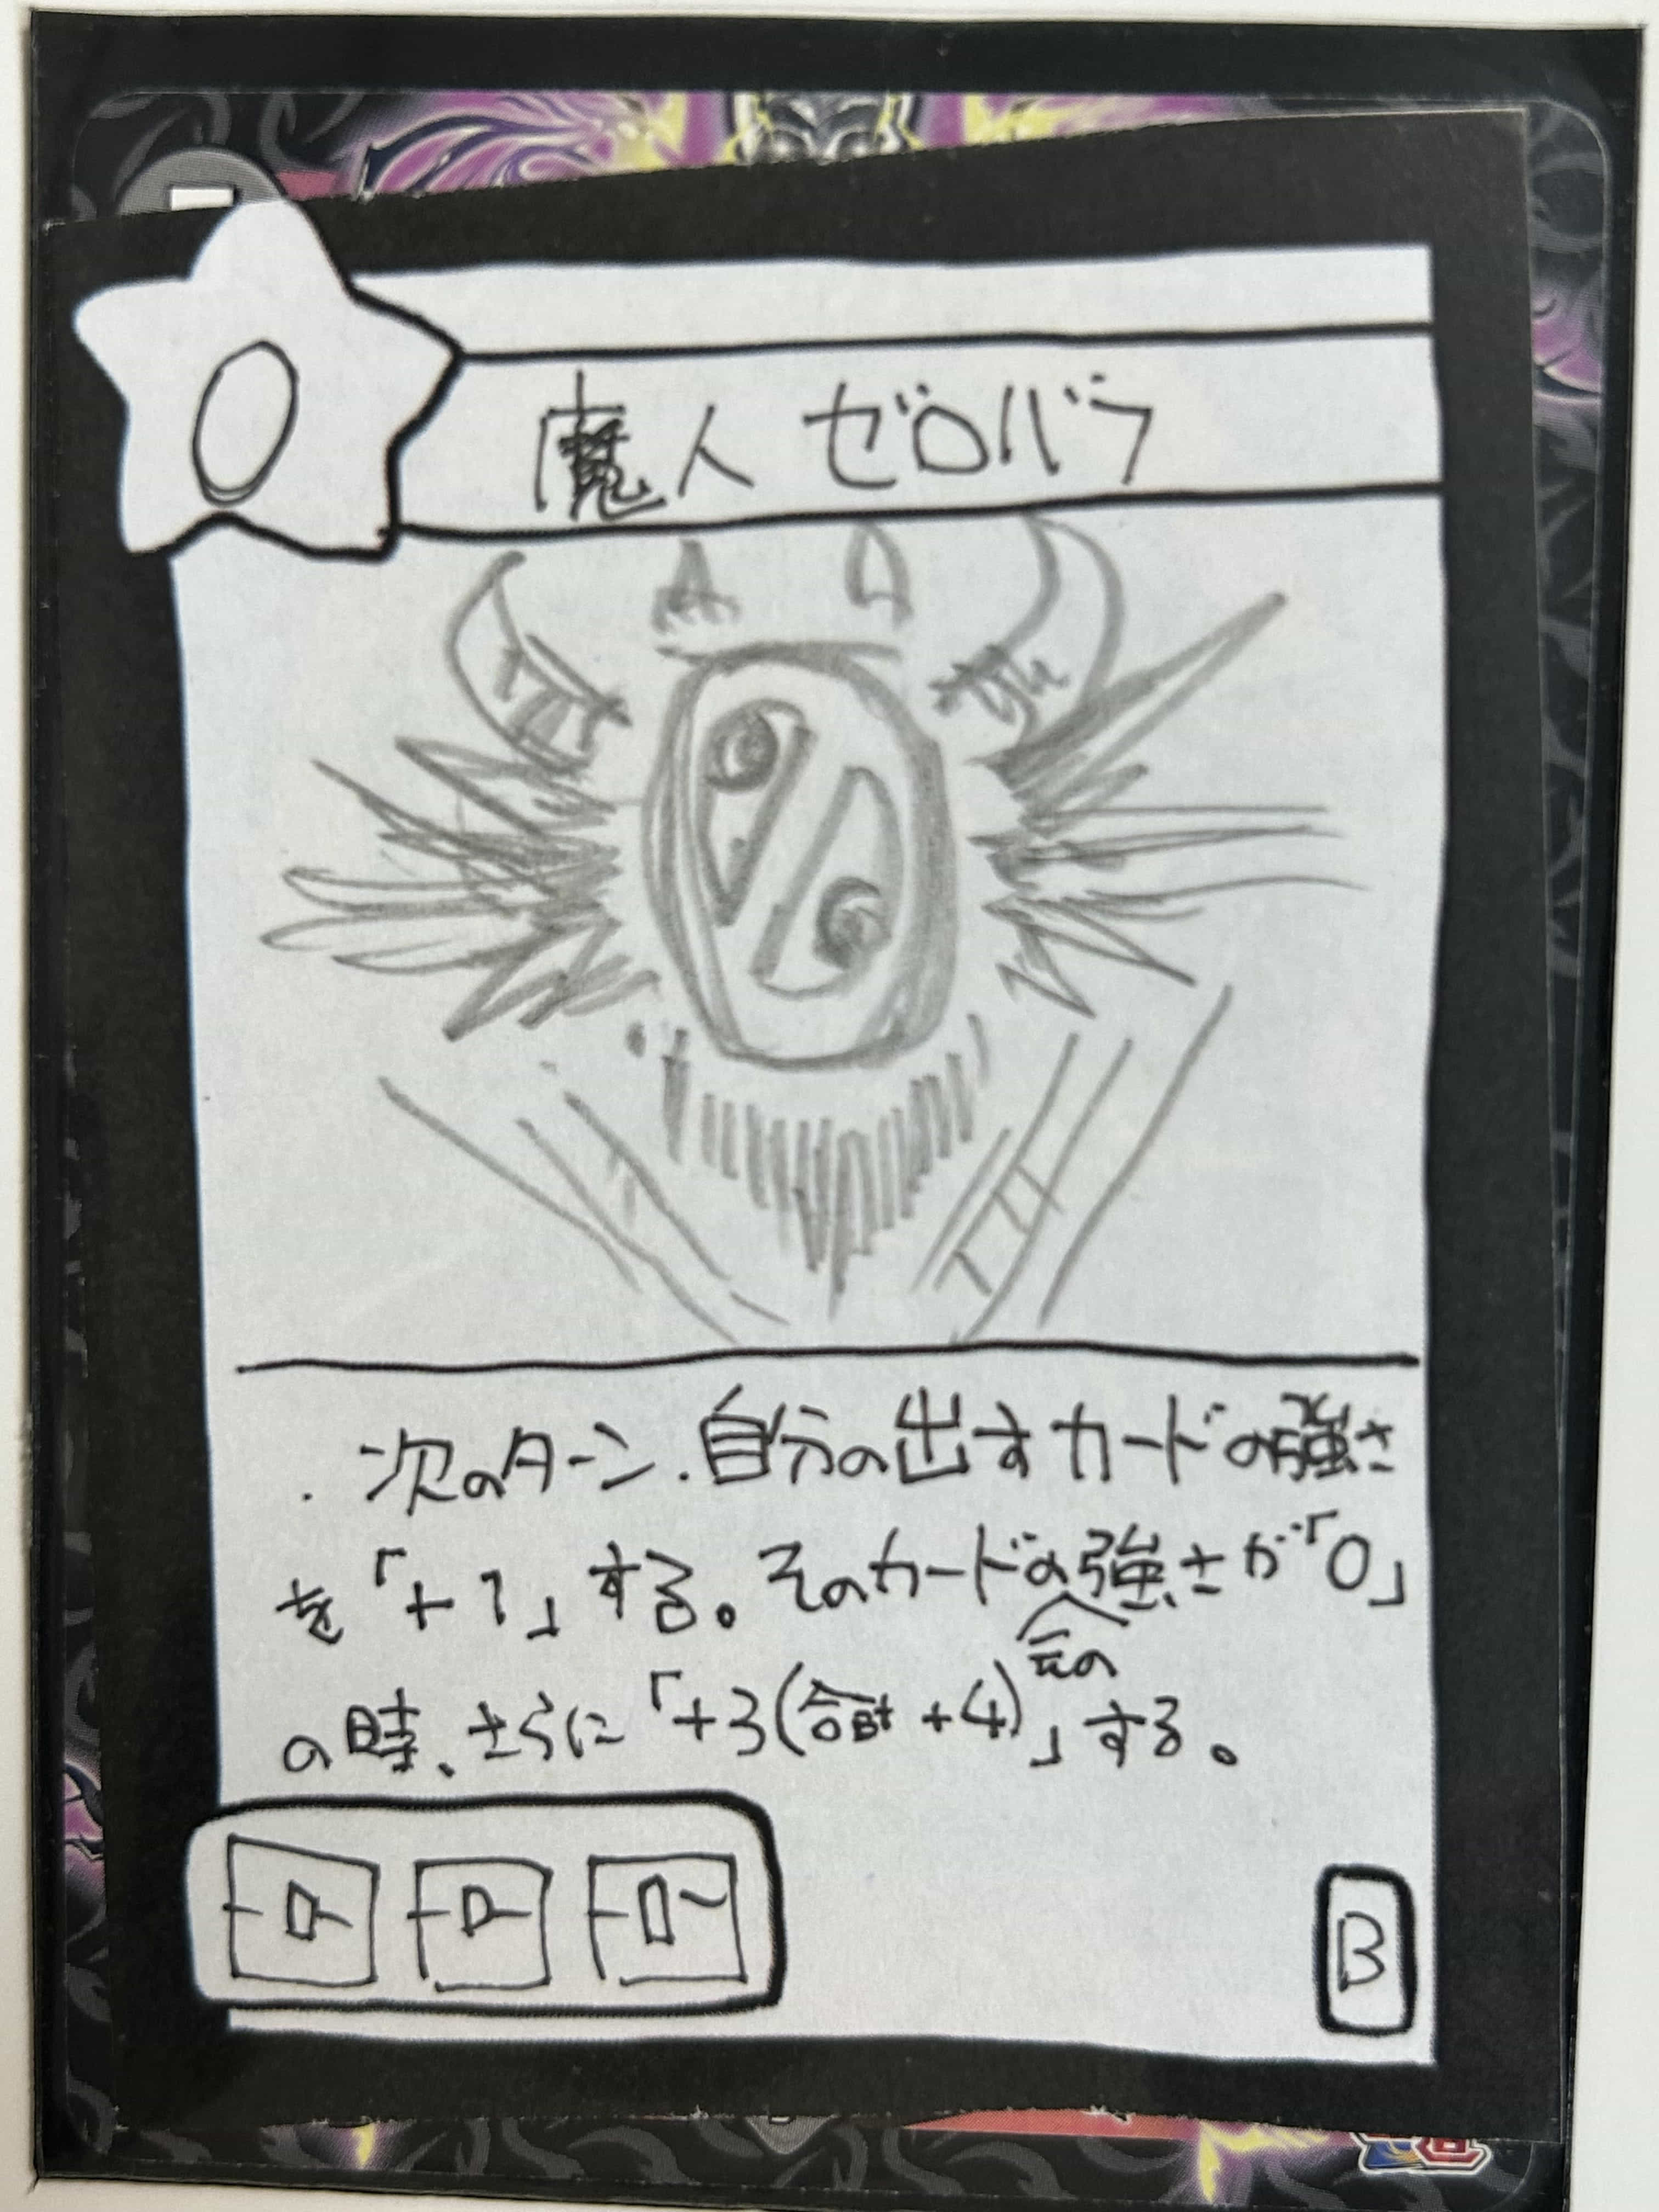 0
魔人 ゼロバラ
・次のターン、自分の出すカードの強さ
を「+1」する。そのカードの強さが「0」
元の
の時、さらに「+3(合計+4)」する。
B